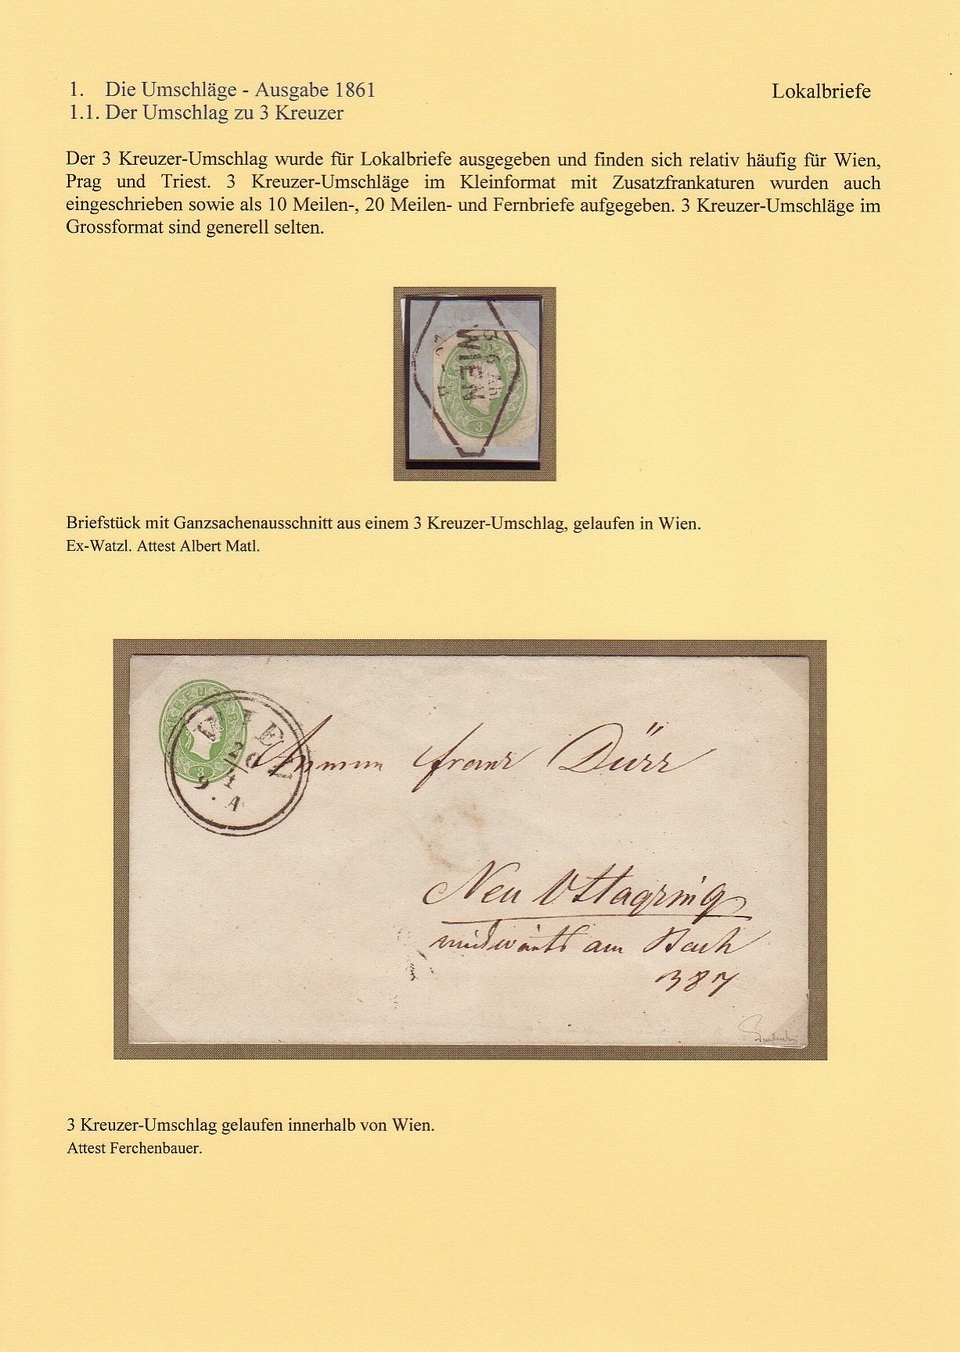 1. Die Umschläge - Ausgabe 1861 Lokalbriefe
1.1. Der Umschlag zu 3 Kreuzer
Der 3 Kreuzer-Umschlag wurde für Lokalbriefe ausgegeben und finden sich relativ häufig für Wien,
Prag und Triest. 3 Kreuzer-Umschläge im Kleinformat mit Zusatzfrankaturen wurden auch
eingeschrieben sowie als 10 Meilen-, 20 Meilen- und Fernbriefe aufgegeben. 3 Kreuzer-Umschläge im
Grossformat sind generell selten.
WIEN
3
Briefstück mit Ganzsachenausschnitt aus einem 3 Kreuzer-Umschlag, gelaufen in Wien.
Ex-Watzl. Attest Albert Matl.
WIEN
9. A
3
Dürr
Neu Ottagring
am Bach
387
3 Kreuzer-Umschlag gelaufen innerhalb von Wien.
Attest Ferchenbauer.